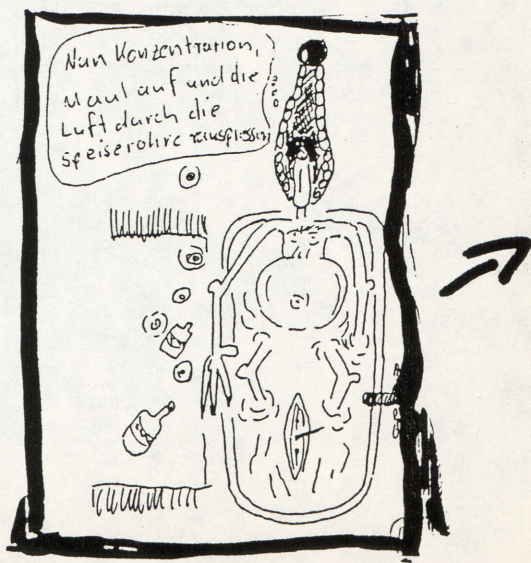 Nun Konzentration,
Maul auf und die
Luft durch die
Speiseröhre